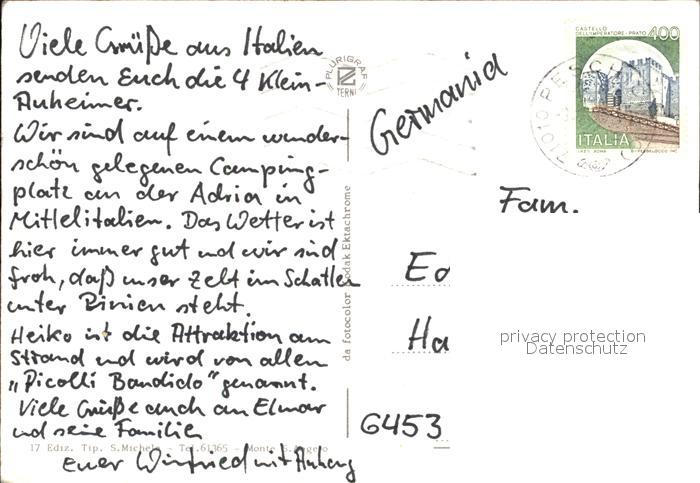 Viele Grüße aus Italien
senden Euch die 4 Klein-
Auheimer.
Wir sind auf einem wunder-
schön gelegenen Camping-
platz an der Adria in
Mittelitalien. Das Wetter ist
hier immer gut und wir sind
froh, daß unser Zelt im Schatten
unter Pinien steht.
Heiko ist die Attraktion am
Strand und wird von allen
„Picolli Bandido“ genannt.
Viele Grüße auch an Elmar
und seine Familie
17 Ediz. Tip. S.Michele - Tel.61365 - Monte S.Angelo
Euer Winfried mit Anhang
PLURIGRAF
TERNI
da fotocolor Kodak Ektachrome
Germania
CASTELLO
DELL'IMPERATORE - PRATO
400
ITALIA
71010 PESCHICI
Fam.
Ed
Ha
6453
privacy protection
Datenschutz